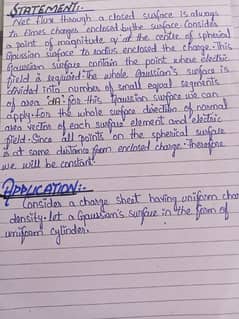 STATEMENT:-
Net flux through a closed surface is always
times charges enclosed by the surface. Consider
a point of magnitude q at the centre of spherical
Gaussian surface to radius enclosed the charge. This
Gaussian surface contain the point where electric
field is required. The whole Gaussian's surface is
divided into number of small equal segments
of area "dA" for this Gaussian surface we can
apply. For the whole surface direction of normal
area vector of each surface element and electric
field. Since all points on the spherical surface
is at same distance from enclosed charge. Therefore
we will be constant.
APPLICATION:-
Consider a charge sheet having uniform char
density. let a Gaussian's surface in the form of
uniform cylinder.